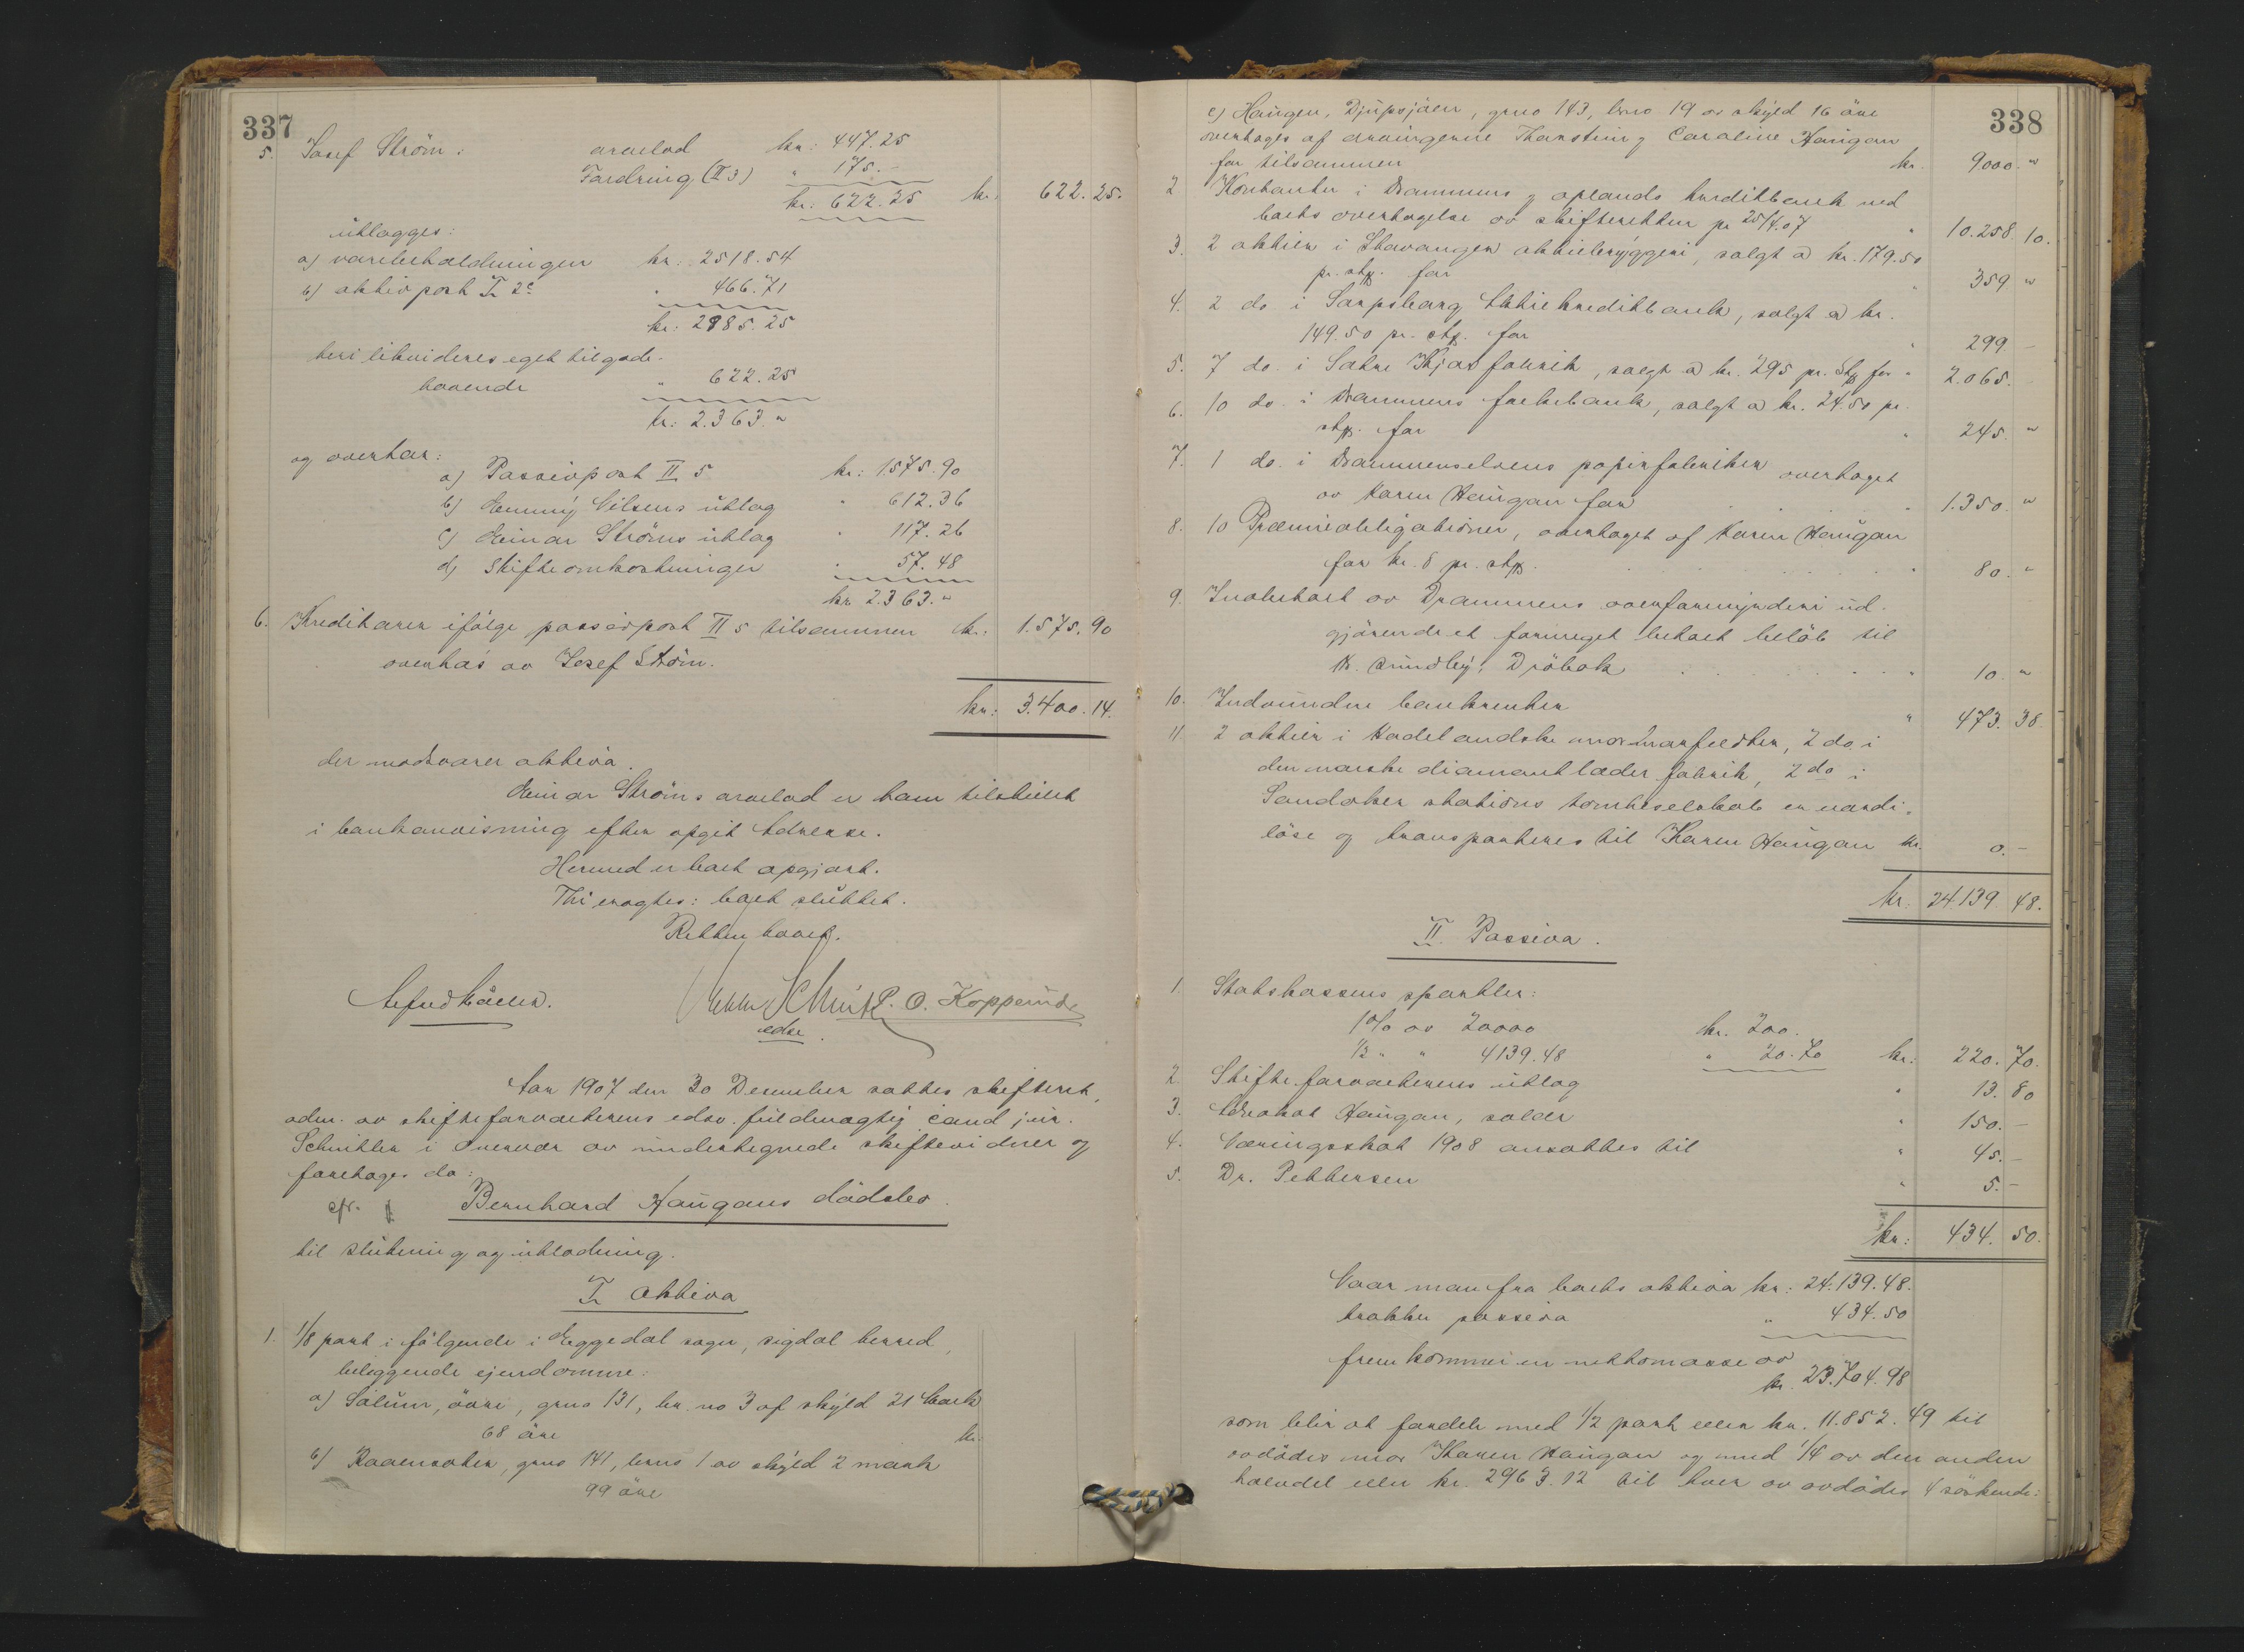 337
5. Josef Ström: arvelod kr: 447.25
Fordring (II 3) " 175.-
kr: 622.25 kr. 622.25.
utlægges:
a) varebeholdningen kr: 2518.54
b) aktivpost I 2c " 466.71
kr: 2985.25
heri likvideres eget tilgode-
havende " 622.25
kr: 2.363. "
og overtar:
a) Passivpost II 5 kr: 1575.90
b) Henny Nilsens utlæg " 612.36
c) Einar Ströms utlæg " 117.26
d) Skifteomkostninger " 57.48
kr 2.363. "
6. Kreditorer ifölge passivpost II 5 tilsammen kr: 1.575.90
overtas av Josef Ström.
kr: 3.400.14.
der modsvarer aktiva.
Einar Ströms arvelod er ham tilstillet
i bankanvisning efter opgit adresse.
Hermed er boet opgjort.
Thi eragtes: boet sluttet.
Retten hævet.
P. O. Kopperud
edsv.
Aar 1907 den 30 December sattes skifteret,
adm. av skifteforvalterens edsv. fuldmægtig cand jur.
Schnitler i overvær av undertegnede skiftevidner og
foretages da:
cfr. Bernhard Haugans dödsbo.
til slutning og utlodning.
I Aktiva
1. 1/8 part i fölgende i Eggedal sogn, sigdal herred,
beliggende ejendomme:
a) Sålum, övre, grno 131, br. no 3 af skyld 21 mark
68 öre kr.
b) Raaensæter, grno 141, brno 1 av skyld 2 mark
99 öre
338
c) Haugen, Djupsjöen, grno 143, brno 19 av skyld 16 öre
overtages af arvingerne Thorstein og Caroline Haugan
for tilsammen kr. 9000. "
2. Kontanter i Drammens og oplands kreditbank ved
boets overtagelse av skifteretten pr 25/4.07 " 10.258 10.
3. 2 aktier i Stavanger aktiebryggeri, solgt a kr. 179.50
pr. stk. for " 359 "
4. 2 do. i Sarpsborg Aktiekreditbank, solgt a kr.
149.50 pr. stk. for " 299. -
5. 7 do. i Sætre Kjæxfabrik, solgt a kr. 295 pr. Stk for " 2.065. -
6. 10 do. i Drammens folkebank, solgt a kr. 24.50 pr.
stk. for " 245. "
7. 1 do. i Drammenselvens papirfabriker overtaget
av Karen Haugan for " 1.350. "
8. 10 Præmieobligationer, overtaget af Karen Haugan
for kr. 8 pr. stk. " 80. "
9. Indbetalt av Drammens overformynderi ud-
gjörende et formeget betalt belöb til
K. Sundby, Dröbak " 10. "
10. Indvundne bankrenter " 473. 38.
11. 2 aktier i Hadelandske mormarfeldter, 2 do. i
den norske diamantlæder fabrik, 2 do i
Sandaker stations tomteselskab er værdi-
löse og transporteres til Karen Haugan kr. 0. -
kr. 24.139 48.
II. Passiva.
1. Statskassens sportler:
1% av 20000 kr. 200.
1/2 " " 4139.48 " 20.70 kr: 220. 70.
2. Skifteforvalterens utlæg " 13. 80
3. Advokat Haugan, salær " 150. -
4. Næringsskat 1908 ansættes til " 45. -
5. Dr. Pettersen " 5. -
kr: 434. 50.
Naar man fra boets aktiva kr: 24.139.48.
trækker passiva " 434.50
fremkommer en nettomasse av
kr. 23.704.98
som blir at fordele med 1/2 part eller kr. 11.852.49 til
avdödes mor Karen Haugan og med 1/4 av den anden
halvdel eller kr. 2963.12 til hver av avdödes 4 söskende: